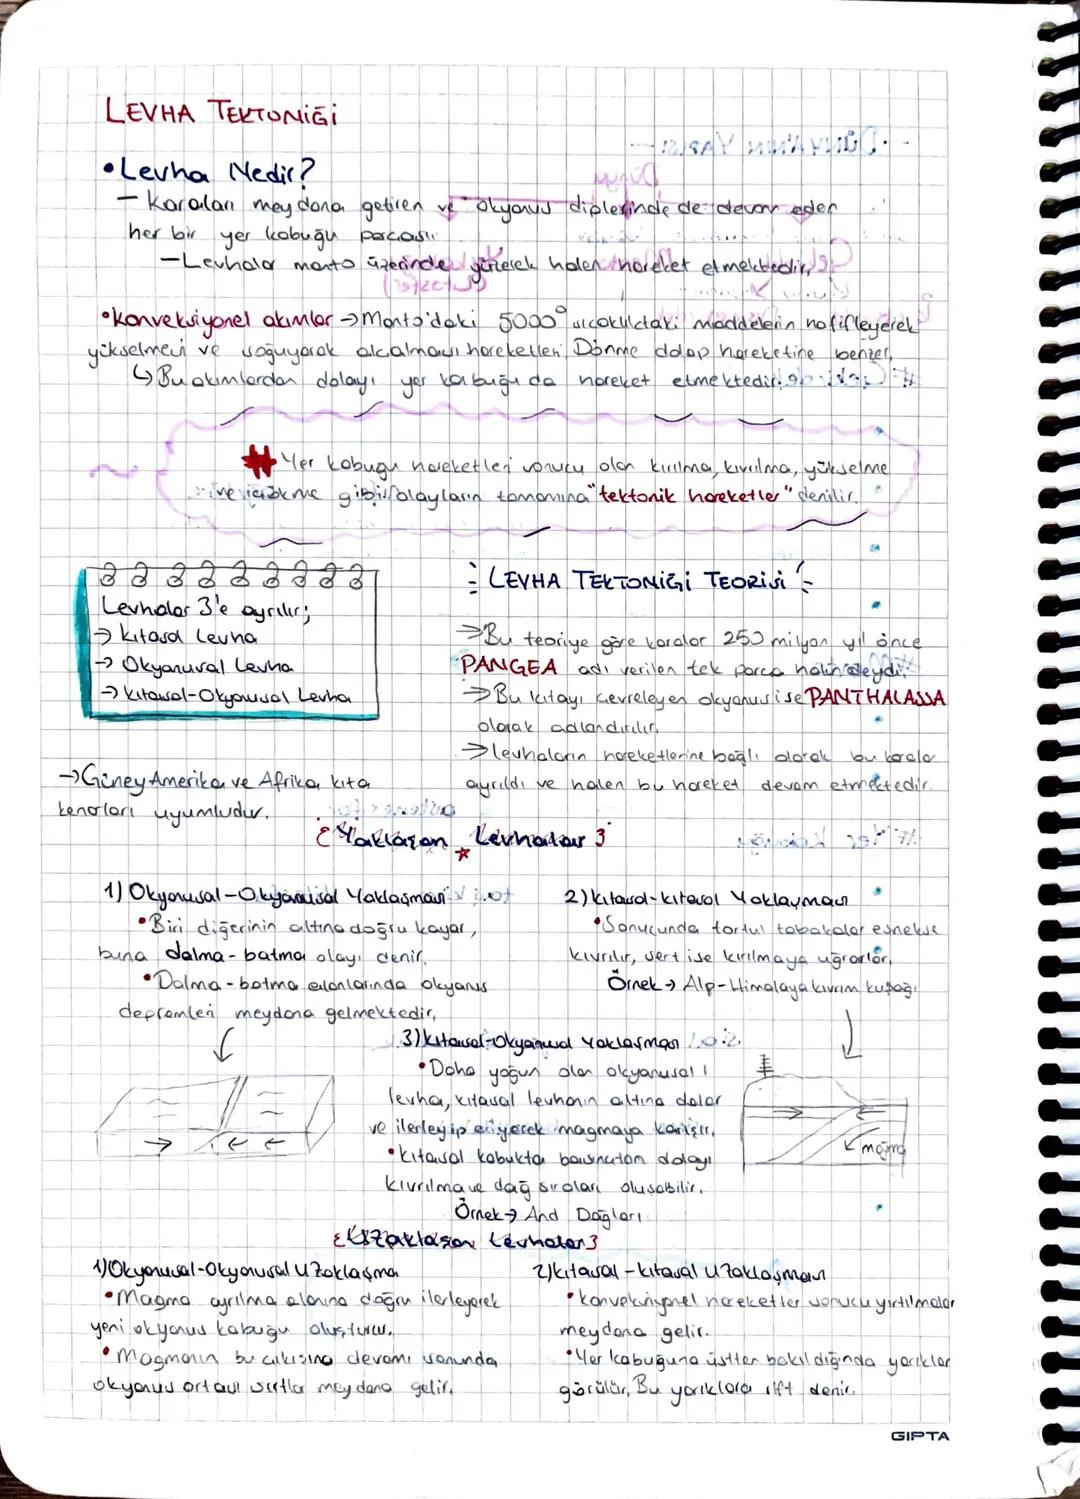 LEVHA TEKTONİĞİ
• Levha Nedir?
– Karaları meydana getiren ve okyanus diplerinde de devam eden
her bir yer kabuğu parçası.
– Levhalar manto üzerinde yüzerek halen hareket etmektedir.
• Konveksiyonel akımlar → Manto'daki 5000° sıcaklıktaki maddelerin hafifleyerek
yükselmesi ve soğuyarak alçalması hareketleri. Dönme dolap hareketine benzer.
↳ Bu akımlardan dolayı yer kabuğu da hareket etmektedir.
# Yer kabuğu hareketleri sonucu olan kırılma, kıvrılma, yükselme
ve çökme gibi olayların tamamına "tektonik hareketler" denilir.
Levhalar 3'e ayrılır;
→ Kıtasal Levha
→ Okyanusal Levha
→ Kıtasal-Okyanusal Levha
→ Güney Amerika ve Afrika kıta
kenarları uyumludur.
LEVHA TEKTONİĞİ TEORİSİ
→ Bu teoriye göre karalar 250 milyon yıl önce
PANGEA adı verilen tek parça halindeydi.
→ Bu kıtayı çevreleyen okyanus ise PANTHALASSA
olarak adlandırılır.
→ levhaların hareketlerine bağlı olarak bu karalar
ayrıldı ve halen bu hareket devam etmektedir.
Yaklaşan Levhalar
1) Okyanusal-Okyanusal Yaklaşması
• Biri diğerinin altına doğru kayar,
buna dalma-batma olayı denir.
• Dalma-batma alanlarında okyanus
depremleri meydana gelmektedir.
2) Kıtasal-kıtasal Yaklaşması
• Sonucunda tortul tabakalar esnekse
kıvrılır, sert ise kırılmaya uğrarlar.
Örnek → Alp-Himalaya kıvrım kuşağı
3) Kıtasal-Okyanusal Yaklaşması
• Daha yoğun olan okyanusal
levha, kıtasal levhanın altına dalar
ve ilerleyip eriyerek magmaya karışır.
• Kıtasal kabukta basınçtan dolayı
kıvrılma ve dağ sıraları oluşabilir.
Örnek → And Dağları
magma
Uzaklaşan Levhalar
1) Okyanusal-Okyanusal Uzaklaşma
• Magma ayrılma alanına doğru ilerleyerek
yeni okyanus kabuğu oluşturur.
• Magmanın bu çıkışına devamı sonunda
okyanus ortası sırtlar meydana gelir.
2) Kıtasal-kıtasal Uzaklaşması
• Konveksiyonel hareketler sonucu yırtılmalar
meydana gelir.
• Yer kabuğuna üstten bakıldığında yarıklar
görülür, Bu yarıklara rift denir.
GIPTA